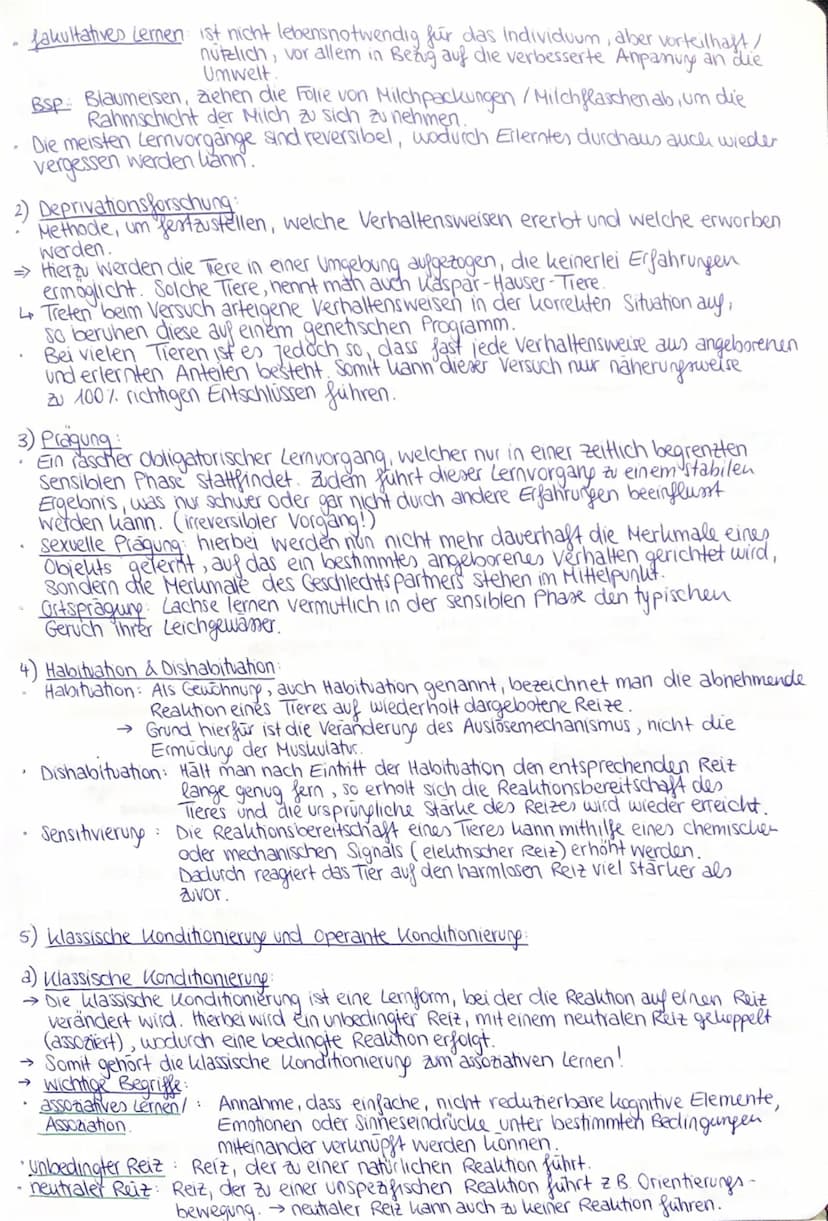 · fakultatives Lernen: ist nicht lebensnotwendig für das Individuum, aber vorteilhaft /
nützlich, vor allem in Bezug auf die verbesserte Anpassung an die
Umwelt.
Bsp.: Blaumeisen, ziehen die Folie von Milchpackungen / Milchflaschen ab, um die
Rahmschicht der Milch zu sich zu nehmen.
· Die meisten Lernvorgänge sind reversibel, wodurch Erlerntes durchaus auch wieder
vergessen werden kann.
2) Deprivationsforschung:
· Methode, um festzustellen, welche Verhaltensweisen ererbt und welche erworben
werden.
⇒ Hierzu werden die Tiere in einer Umgebung aufgezogen, die keinerlei Erfahrungen
ermöglicht. Solche Tiere, nennt man auch Kaspar-Hauser-Tiere.
↳ Treten beim Versuch arteigene Verhaltensweisen in der korrekten Situation auf,
so beruhen diese auf einem genetischen Programm.
· Bei vielen Tieren ist es jedoch so, dass fast jede Verhaltensweise aus angeborenen
und erlernten Anteilen besteht. Somit kann dieser Versuch nur näherungsweise
zu 100% richtigen Entschlüssen führen.
3) Prägung:
· Ein rascher obligatorischer Lernvorgang, welcher nur in einer zeitlich begrenzten
sensiblen Phase stattfindet. Zudem führt dieser Lernvorgang zu einem stabilen
Ergebnis, was nur schwer oder gar nicht durch andere Erfahrungen beeinflusst
werden kann. (irreversibler Vorgang!)
· sexuelle Prägung: hierbei werden nun nicht mehr dauerhaft die Merkmale eines
Objekts gelernt, auf das ein bestimmtes angeborenes Verhalten gerichtet wird,
sondern die Merkmale des Geschlechtspartners stehen im Mittelpunkt.
· Ortsprägung: Lachse lernen vermutlich in der sensiblen Phase den typischen
Geruch ihrer Leichgewässer.
4) Habituation & Dishabituation:
· Habituation: Als Gewöhnung, auch Habituation genannt, bezeichnet man die abnehmende
Reaktion eines Tieres auf wiederholt dargebotene Reize.
→ Grund hierfür ist die Veränderung des Auslösemechanismus, nicht die
Ermüdung der Muskulatur.
· Dishabituation: Hält man nach Eintritt der Habituation den entsprechenden Reiz
lange genug fern, so erholt sich die Reaktionsbereitschaft des
Tieres und die ursprüngliche Stärke des Reizes wird wieder erreicht.
· Sensitivierung: Die Reaktionsbereitschaft eines Tieres kann mithilfe eines chemischen
oder mechanischen Signals (elektrischer Reiz) erhöht werden.
Dadurch reagiert das Tier auf den harmlosen Reiz viel stärker als
zuvor.
5) Klassische Konditionierung und operante Konditionierung:
a) Klassische Konditionierung:
→ Die klassische Konditionierung ist eine Lernform, bei der die Reaktion auf einen Reiz
verändert wird. Hierbei wird ein unbedingter Reiz, mit einem neutralen Reiz gekoppelt
(assoziert), wodurch eine bedingte Reaktion erfolgt.
→ Somit gehört die klassische Konditionierung zum assoziativen Lernen!
→ wichtige Begriffe:
· assoziatives Lernen / : Annahme, dass einfache, nicht reduzierbare kognitive Elemente,
Assoziation. Emotionen oder Sinneseindrücke unter bestimmten Bedingungen
miteinander verknüpft werden können.
· unbedingter Reiz: Reiz, der zu einer natürlichen Reaktion führt.
· neutraler Reiz: Reiz, der zu einer unspezifischen Reaktion führt z.B. Orientierungs-
bewegung. → neutraler Reiz kann auch zu keiner Reaktion führen.